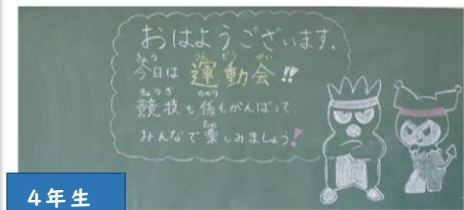 おはようございます。
今日は運動会!!
競技も係もがんばって、
みんなで楽しみましょう!
4年生